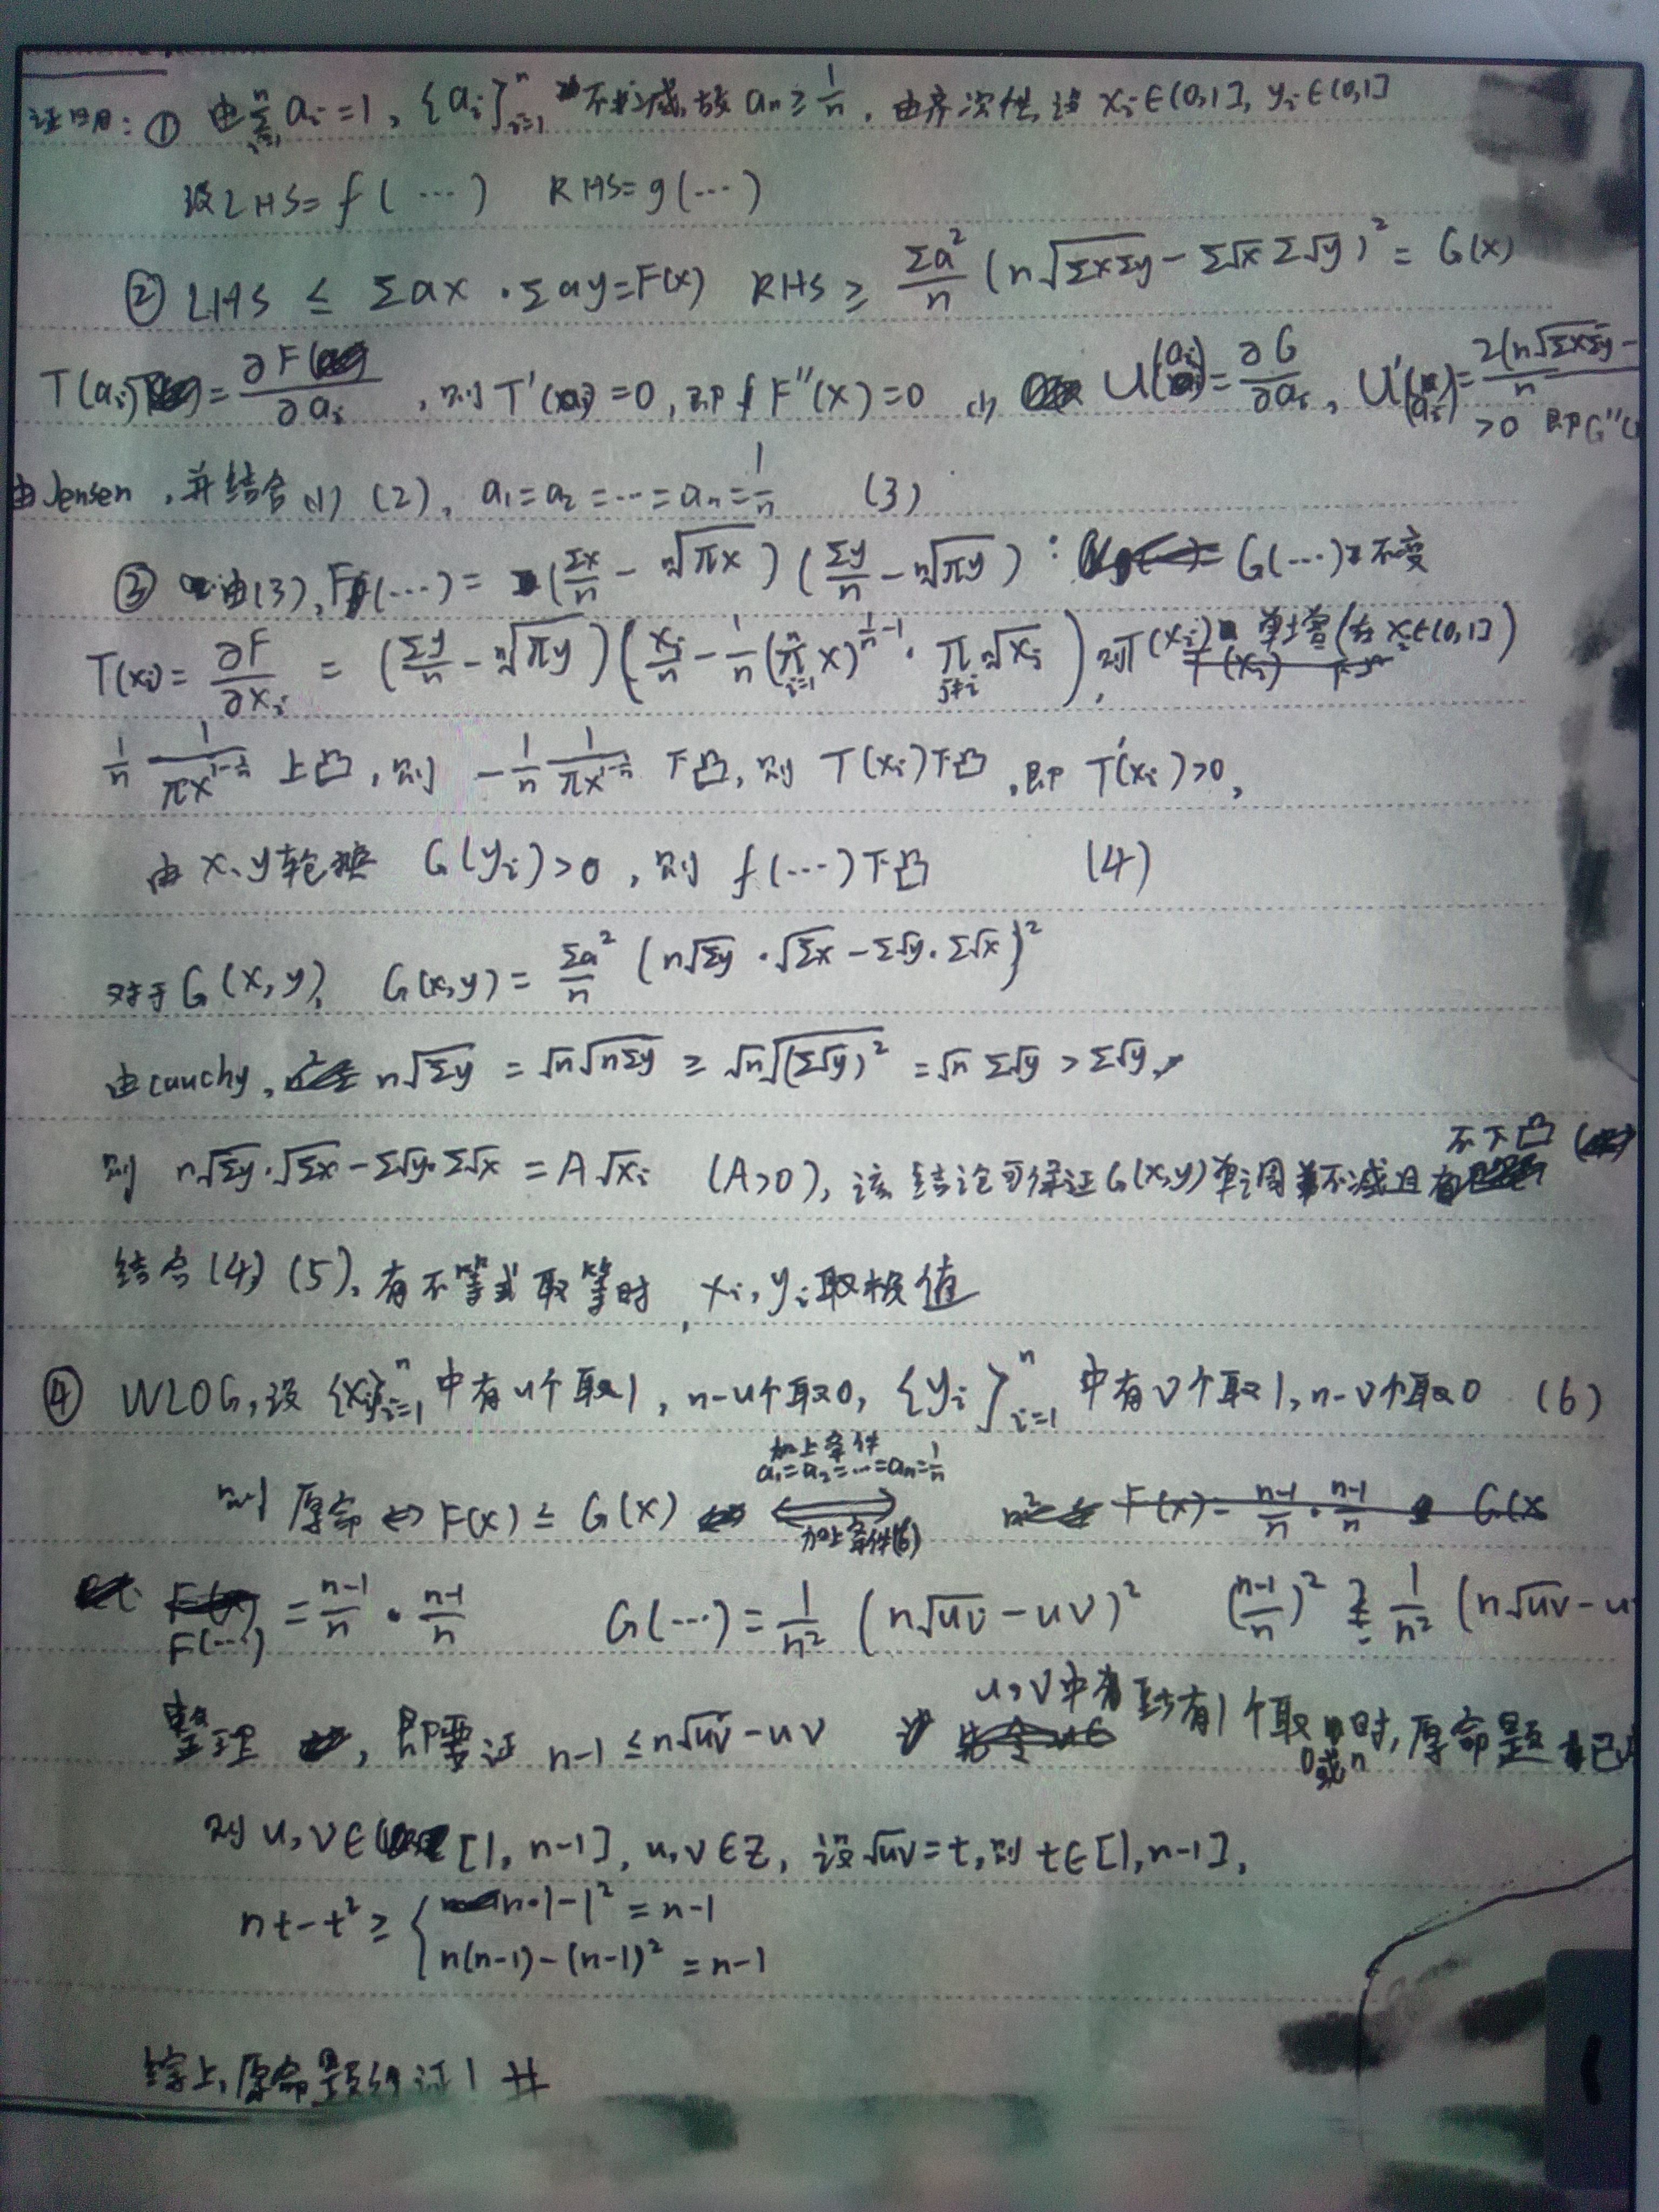 证明：① 由∑_{i=1}^{n} a_i=1，{a_i}_{i=1}^{n} 不减，故 a_n≥1/n，由齐次性，设 x_i∈(0,1]，y_i∈(0,1]
设LHS=f(…) RHS=g(…)
② LHS ≤ ∑ax·∑ay=F(x) RHS ≥ ∑a²/n (n√(∑x∑y) - ∑√x∑√y)² = G(x)
T(a_i)=∂F/∂a_i，则T'(a_i)=0，即F''(x)=0 (1) U(a_i)=∂G/∂a_i，U'(a_i)=2(n√(∑x∑y)-/n
>0 即G''(
由Jensen，并结合(1)(2)，a_1=a_2=…=a_n=1/n (3)
③ 由(3)，F(…)=(∑x/n - ⁿ√(πx))(∑y/n - ⁿ√(πy))：G(…)不变
T(x_i)=∂F/∂x_i=(∑y/n - ⁿ√(πy))(x_i/n - 1/n(π_{i=1}^{n} x)^{1/n-1}·π_{j≠i} ⁿ√x_i)，则T(x_i)单增(在x_i∈(0,1])
1/n 1/πx^{1-1/n} 上凸，则 -1/n 1/πx^{1-1/n} 下凸，则 T(x_i)下凸，即T'(x_i)>0，
由x、y轮换 G(y_i)>0，则 f(…)下凸 (4)
对于G(x,y)，G(x,y)=∑a²/n (n√∑y·√∑x-∑√y·∑√x)²
由cauchy，n√∑y=√n√(n∑y)≥√n√((∑√y)²)=√n∑√y>∑√y，
不下凸
则 n√∑y·√∑x-∑√y·∑√x=A√x_i (A>0)，该结论可保证G(x,y)单调不减且
结合(4)(5)，有不等式取等时，x_i,y_i取极值
④ WLOG，设{x_i}_{i=1}^{n}中有u个取1，n-u个取0，{y_i}_{i=1}^{n}中有v个取1，n-v个取0 (6)
加上条件
a_1=a_2=…=a_n=1/n
则 原命⇔F(x)≤G(x) ⇔ F(x)-(n-1)/n·(n-1)/n G(x
加上条件(6)
F(…)=(n-1)/n·(n-1)/n G(…)=1/n²(n√uv-uv)² ((n-1)/n)² ≥ 1/n²(n√uv-u
整理，即要证 n-1≤n√uv-uv u,v中有至少有1个取0或n时，原命题已
对u,v∈[1,n-1]，u,v∈Z，设√uv=t，则t∈[1,n-1]，
nt-t²≥{n·1-1²=n-1
n(n-1)-(n-1)²=n-1
综上，原命题得证！#